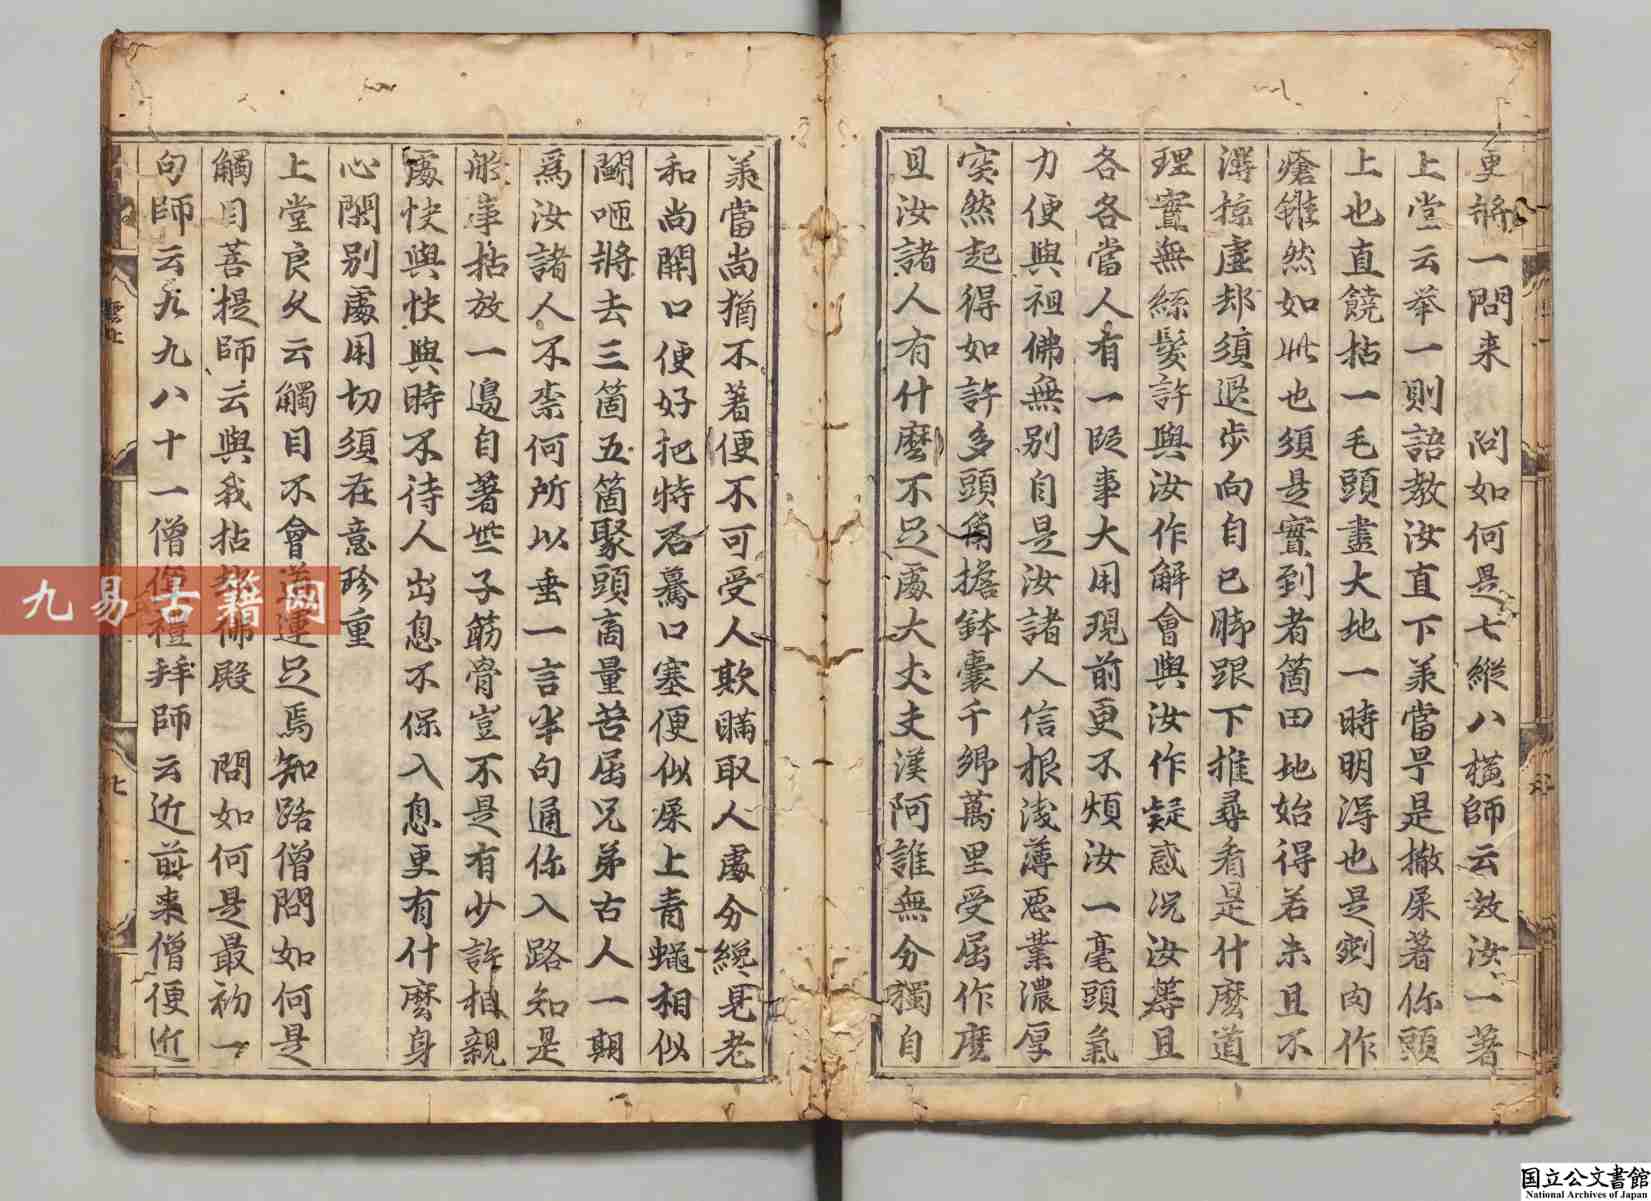 更將一問来 問如何是七縱八橫師云放汝一著
上堂云举一則語教汝直下羕當早是撒屎著你頭
上也直饒拈一毛頭盡大地一時明淂也是剜肉作
瘡雖然如此也須是實到者箇田地始得若未且不
淂掠虗却須退步向自己脚跟下推尋看是什麽道
理實無絲髮許與汝作解會與汝作疑惑况汝等且
各各當人有一段事大用現前更不煩汝一毫頭氣
力便與祖佛無别自是汝諸人信根淺薄惡業濃厚
突然起得如許多頭角擔鉢囊千鄉萬里受屈作麽
且汝諸人有什麽不足處大丈夫漢阿誰無分獨自
羕當尚猶不著便不可受人欺瞞取人處分纔見老
和尚開口便好把特石驀口塞便似屎上青蠅相似
鬭咂將去三箇五箇聚頭商量苦屈兄弟古人一期
爲汝諸人不柰何所以垂一言半句通你入路知是
般事拈放一邊自著些子筋骨豈不是有少許相親
處快與快與時不待人出息不保入息更有什麽身
心閑别處用切須在意珍重
上堂良久云觸目不會道運足焉知路僧問如何是
觸目菩提師云與我拈却佛殿 問如何是最初一
句師云九九八十一僧便禮拜師云近前来僧便近
雲上
七
九易古籍网
国立公文書館
National Archives of Japan